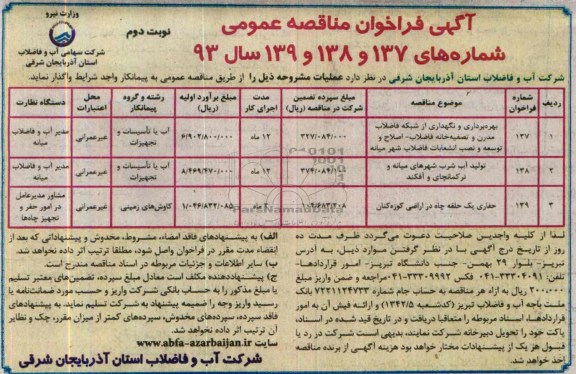 وزارت نیرو
شرکت سهامی آب و فاضلاب
استان آذربایجان شرقی
آگهی فراخوان مناقصه عمومی
نوبت دوم
شماره‌های ۱۳۷ و ۱۳۸ و ۱۳۹ سال ۹۳
شرکت آب و فاضلاب استان آذربایجان شرقی در نظر دارد عملیات مشروحه ذیل را از طریق مناقصه عمومی به پیمانکار واجد شرایط واگذار نماید.
ردیف | شماره فراخوان | موضوع مناقصه | مبلغ سپرده تضمین شرکت در مناقصه (ریال) | مدت اجرای کار | مبلغ برآورد اولیه (ریال) | رشته و گروه پیمانکار | محل اعتبارات | دستگاه نظارت
۱ | ۱۳۷ | بهره‌برداری و نگهداری از شبکه فاضلاب مدرن و تصفیه‌خانه فاضلاب- اصلاح و توسعه و نصب انشعابات فاضلاب شهر میانه | ۳۲۷/۰۸۴/۰۰۰ | ۱۲ ماه | ۶/۹۰۲/۸۰۰/۰۰۰ | آب یا تأسیسات و تجهیزات | غیرعمرانی | مدیر آب و فاضلاب میانه
۲ | ۱۳۸ | تولید آب شرب شهرهای میانه و ترکمانچای و آقکند | ۱۲ ماه | ۸/۴۶۹/۴۷۰/۰۰۰ | آب یا تأسیسات و تجهیزات | غیرعمرانی | مدیر آب و فاضلاب میانه
۳ | ۱۳۹ | حفاری یک حلقه چاه در اراضی گوزه‌کنان | کاوش‌های زمینی | غیرعمرانی | مشاور مدیرعامل در امور حفر و تجهیز چاه‌ها
لذا از کلیه واجدین صلاحیت دعوت می‌گردد ظرف مدت ده
روز از تاریخ درج آگهی با در نظر گرفتن موارد ذیل، به آدرس
تبریز- بلوار ۲۹ بهمن- جنب دانشگاه تبریز- امور قراردادها-
تلفن: ۳۳۳۰۴۰۹۱-۰۴۱ فکس ۳۳۳۰۹۹۹۲-۰۴۱ مراجعه و ضمن واریز مبلغ
۲۰۰/۰۰۰ ریال به ازاء هر مناقصه به حساب جام شماره ۷۲۲۱۱۲۴۷۳۳ بانک
ملت باجه آب و فاضلاب تبریز (کدشعبه ۱۳۴۲/۵) و ارائه فیش آن به امور
قراردادها، اسناد مربوطه را متعاقبا دریافت و در تاریخ قید شده در اسناد،
پاکت خود را تحویل دبیرخانه شرکت نمایند، بدیهی است شرکت در رد یا
قبول هر یک از پیشنهادات مختار خواهد بود هزینه آگهی از برنده مناقصه
اخذ خواهد شد.
الف) به پیشنهادهای فاقد امضاء، مشروط، مخدوش و پیشنهاداتی که بعد از
انقضاء مدت مقرر در فراخوان واصل شود، مطلقا ترتیب اثر داده نخواهد شد.
ب) سایر اطلاعات و جزئیات مربوطه در اسناد مناقصه مندرج است
ج) پیشنهاددهنده مکلف است معادل مبلغ سپرده، تضمین‌های معتبر تسلیم
یا مبلغ مذکور را به حساب بانکی شرکت واریز و حسب مورد ضمانتنامه یا
رسید واریز وجه را ضمیمه پیشنهاد به شرکت تسلیم نماید. به پیشنهادهای
فاقد سپرده، سپرده‌های مخدوش، سپرده‌های کمتر از میزان مقرر، چک و نظایر
آن ترتیب اثر داده نخواهد شد.
سایت www.abfa-azarbaijan.ir
شرکت آب و فاضلاب استان آذربایجان شرقی